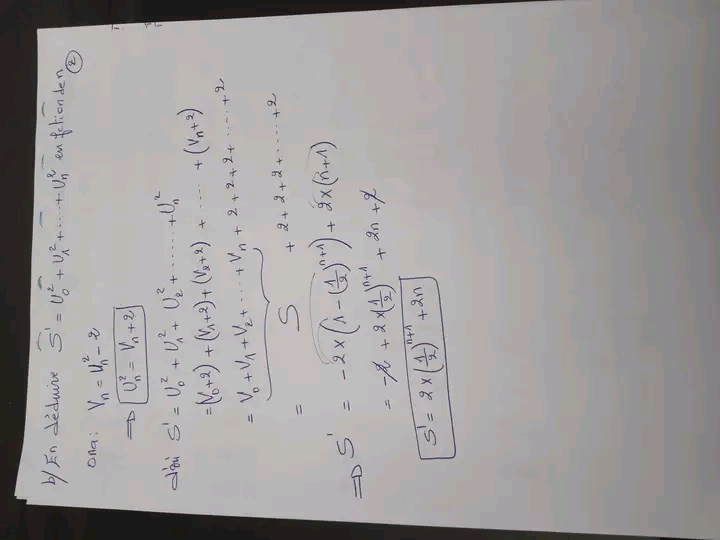 b/ En déduire S' = U₀² + U₁² + ..... + Uₙ² en fction de n
②
ona: Vₙ = Uₙ² - 2
⇒ Uₙ² = Vₙ + 2
d'où S' = U₀² + U₁² + U₂² + ...... + Uₙ²
= (V₀+2) + (V₁+2) + (V₂+2) + ..... + (Vₙ+2)
= V₀ + V₁ + V₂ + ... + Vₙ + 2 + 2 + 2 + ..... + 2
= S + 2 + 2 + 2 + ..... + 2
⇒ S' = -2 × (1 - (1/2)ⁿ⁺¹) + 2 × (n+1)
= -2 + 2 × (1/2)ⁿ⁺¹ + 2n + 2
S' = 2 × (1/2)ⁿ⁺¹ + 2n